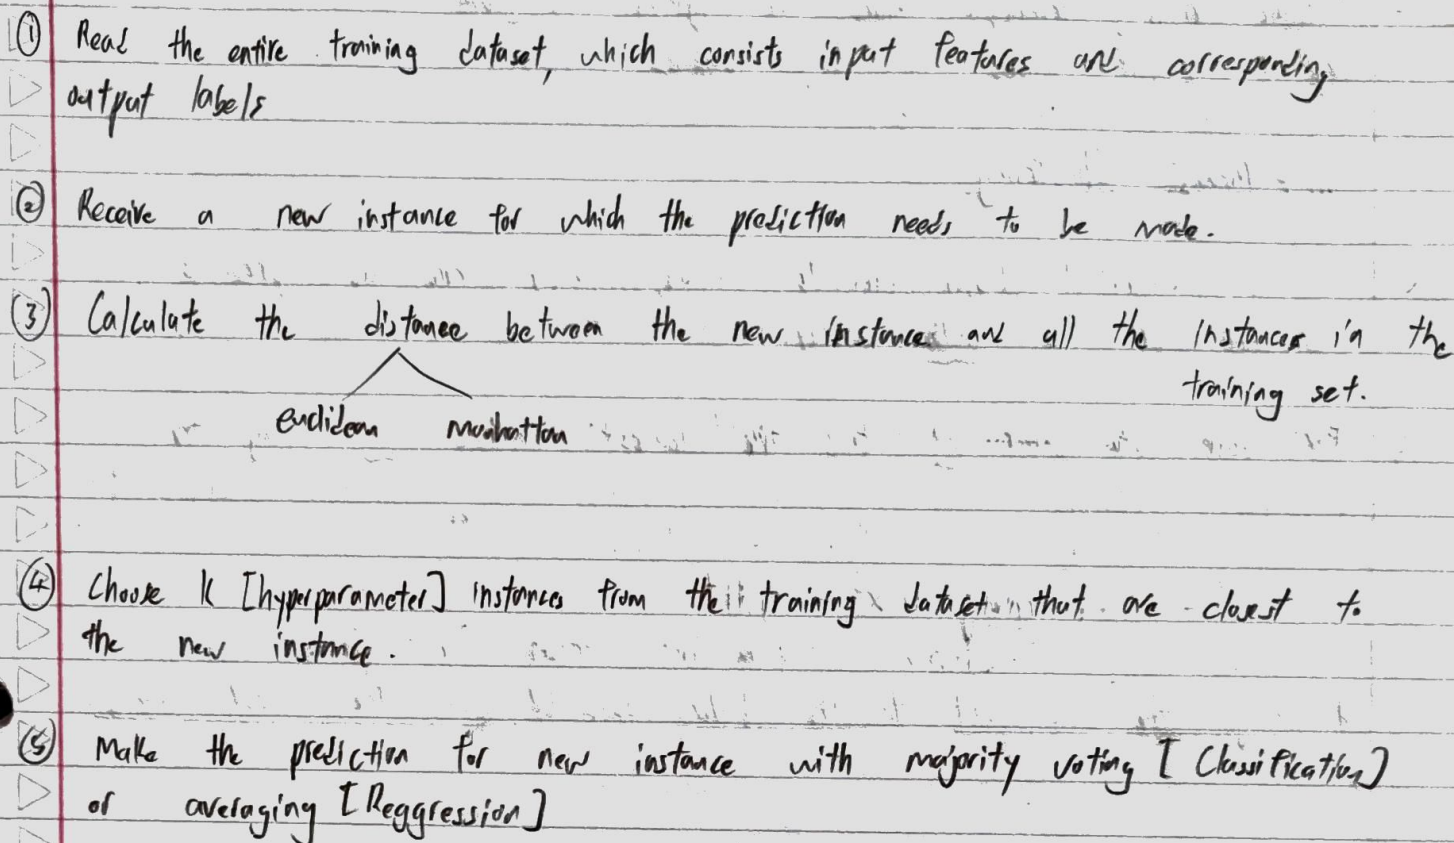 ① Read the entire training dataset, which consists input features and corresponding
output labels
② Receive a new instance for which the prediction needs to be made.
③ Calculate the distance between the new instance and all the instances in the
training set.
euclidean manhattan
④ Choose K [hyperparameter] instances from the training dataset that are closest to
the new instance.
⑤ Make the prediction for new instance with majority voting [Classification]
or averaging [Reggression]